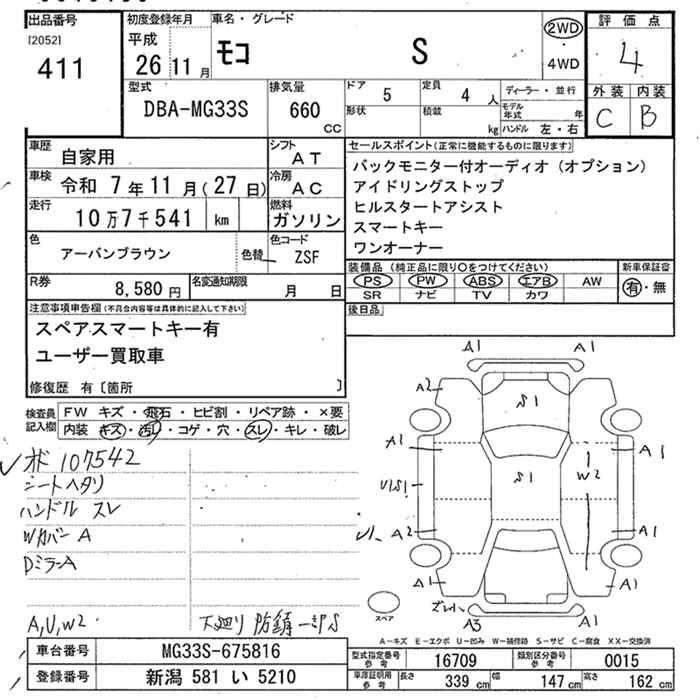 出品番号
[2052]
411
初度登録年月
平成
26 11 月
車名・グレード
モコ S
2WD
・
4WD
評価点
4
外装 内装
C B
型式
DBA-MG33S
排気量
660
CC
ドア
5
定員
4 人
形状
積載
kg
ディーラー・並行
モデル年式 年
ハンドル 左・右
車歴
自家用
シフト
AT
車検
令和 7年11月(27日)
冷房
AC
走行
10万7千541 km
燃料
ガソリン
色
アーバンブラウン
色替
色コード
ZSF
R券
8,580 円
名変通知期限
月 日
セールスポイント(正常に機能するものに限ります)
バックモニター付オーディオ(オプション)
アイドリングストップ
ヒルスタートアシスト
スマートキー
ワンオーナー
装備品 (純正品に限り〇をつけてください)
PS PW ABS エアB AW
SR ナビ TV カワ
新車保証書
有・無
後日品
注意事項申告欄(不具合内容等は具体的に記入して下さい)
スペアスマートキー有
ユーザー買取車
修復歴 有〔箇所 〕
検査員
記入欄
FW キズ・飛石・ヒビ割・リペア跡・×要
内装 キズ・汚れ・コゲ・穴・スレ・キレ・破レ
107542
シートヘタリ
ハンドル スレ
Wカバー A
DミラーA
A,U,W2
下廻り 防錆 一部S
A1 A1
A2 S1 A1
A1 A1
U1S1 S1 W2
U1 A2 A1
A1 A1
A3 A1
スペア
A-キズ E-エクボ U-凹み W-補修跡 S-サビ C-腐食 XX-交換済
車台番号
MG33S-675816
登録番号
新潟 581 い 5210
型式指定番号
参考
16709
類別区分番号
参考
0015
車庫証明用
参考
長さ 339 cm 幅 147 cm 高さ 162 cm